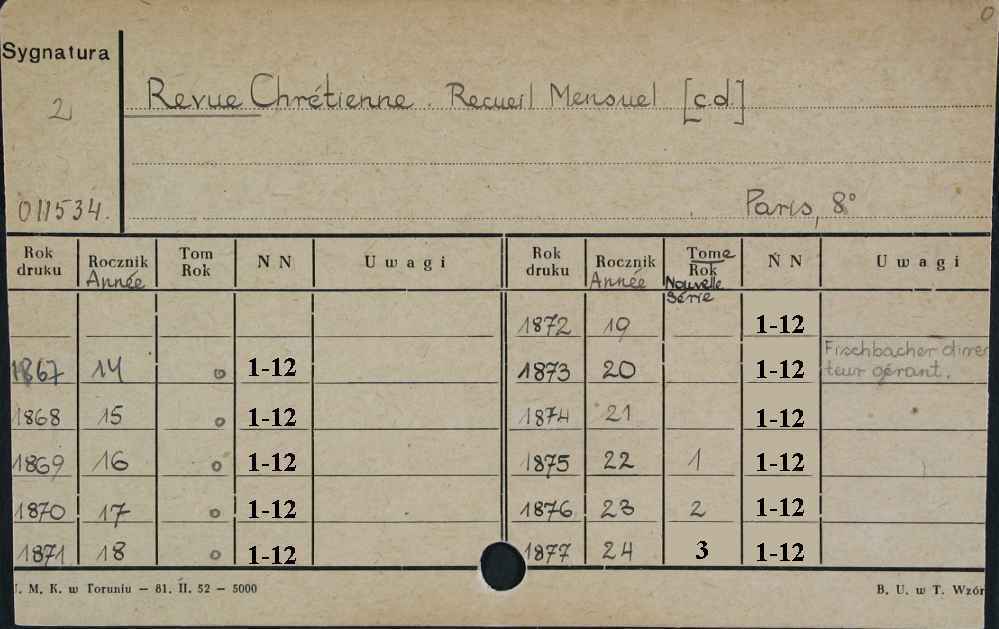 0
Sygnatura
2
Revue Chrétienne. Recueil Mensuel [c.d.]
011534.
Paris, 8°
Rok druku Rocznik Année Tom Rok N N Uwagi
Rok druku Rocznik Année Tome Rok Nouvelle Série N N Uwagi
1872 19 1-12
1867 14 o 1-12
1873 20 1-12 Fischbacher direc
teur gérant.
1868 15 o 1-12
1874 21 1-12
1869 16 o 1-12
1875 22 1 1-12
1870 17 o 1-12
1876 23 2 1-12
1871 18 o 1-12
1877 24 3 1-12
U. M. K. w Toruniu — 81. II. 52 — 5000
B. U. w T. Wzór